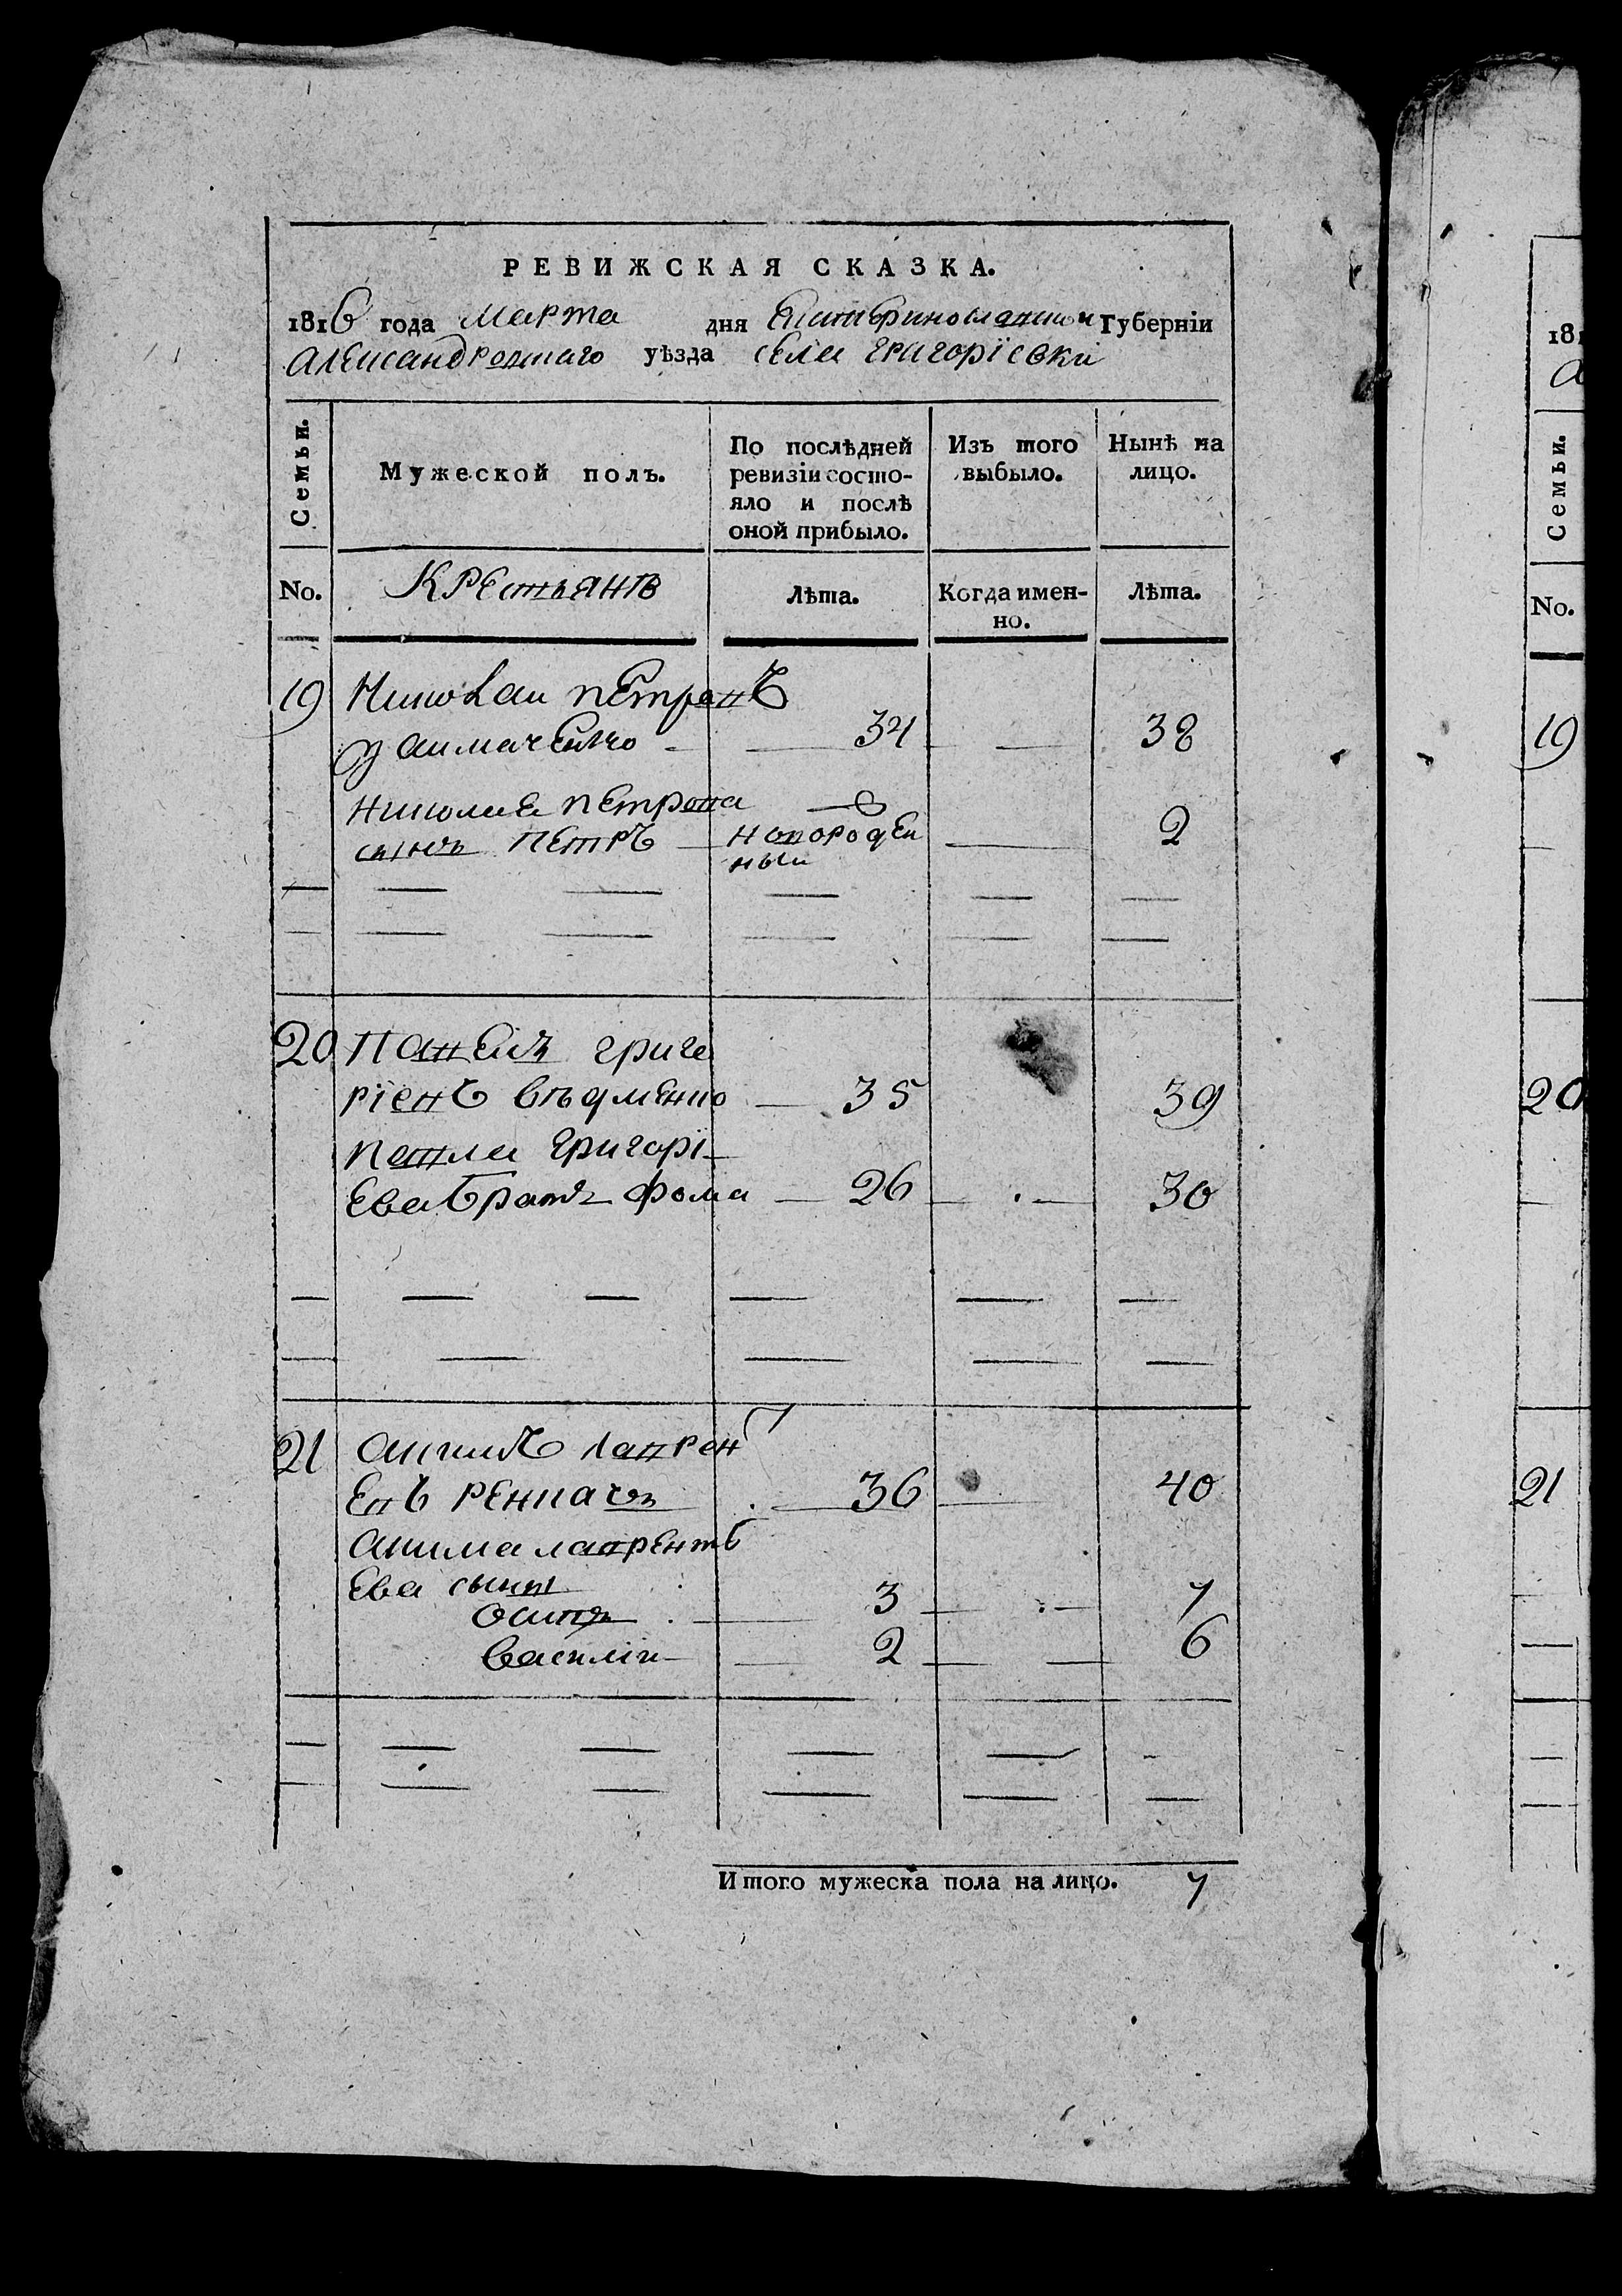 РЕВИЖСКАЯ СКАЗКА.
1816 года марта дня Екатеринославской Губерніи
Александровскаго уѣзда села григоріевки
Семьи.
Мужеской полъ.
По послѣдней ревизіи состо-
яло и послѣ
оной прибыло.
Изъ того
выбыло.
Нынѣ на
лицо.
No.
Крестьянъ
Лѣта.
Когда имен-
но.
Лѣта.
19 Николаи петровъ
34 38
николая петрова
сынъ петръ новорожден
ныи 2
20 Павелъ григо
ріевъ 35 39
павла григорі
ева братъ фома 26 30
21 лаврен
евъ 36 40
лаврентъ
ева сыны
осипъ 3 7
василіи 2 6
Итого мужеска пола на лицо. 7
181
Семьи.
No.
19
20
21